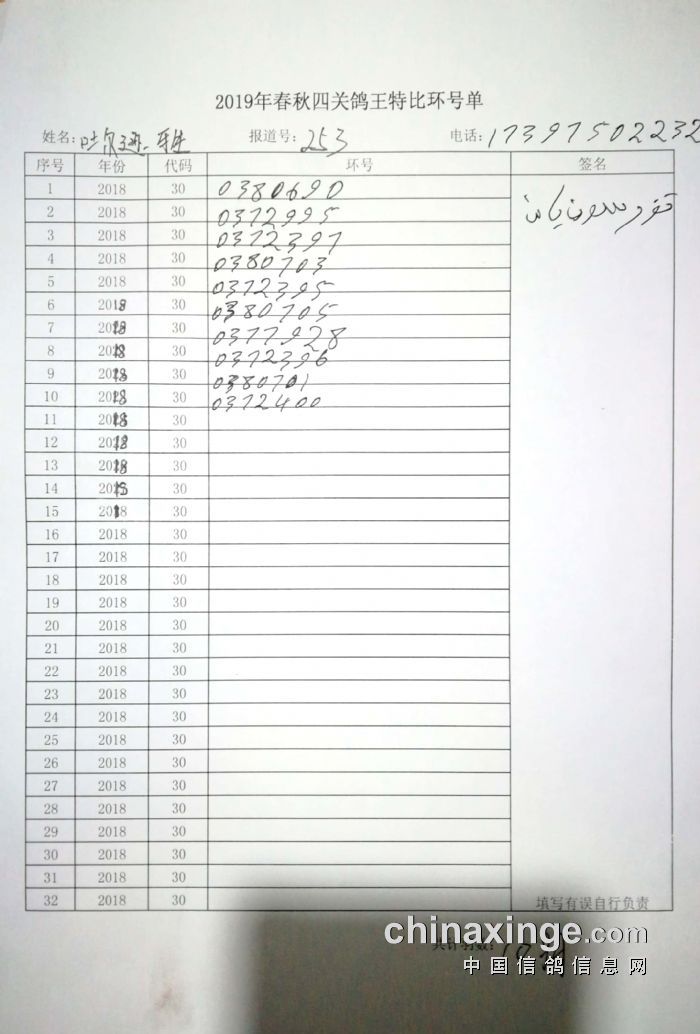 2019年春秋四关鸽王特比环号单
姓名: 吐尔逊 报道号: 253 电话: 17397502232
序号 年份 代码 环号 签名
1 2018 30 0380690
2 2018 30 0372995
3 2018 30 0372397
4 2018 30 0380703
5 2018 30 0372395
6 2018 30 0380705
7 2018 30 0377928
8 2018 30 0372396
9 2018 30 0380701
10 2018 30 0372400
11 2018 30
12 2018 30
13 2018 30
14 2018 30
15 2018 30
16 2018 30
17 2018 30
18 2018 30
19 2018 30
20 2018 30
21 2018 30
22 2018 30
23 2018 30
24 2018 30
25 2018 30
26 2018 30
27 2018 30
28 2018 30
29 2018 30
30 2018 30
31 2018 30
32 2018 30 填写有误自行负责
共计羽数: 10羽
chinaxinge.com
中国信鸽信息网